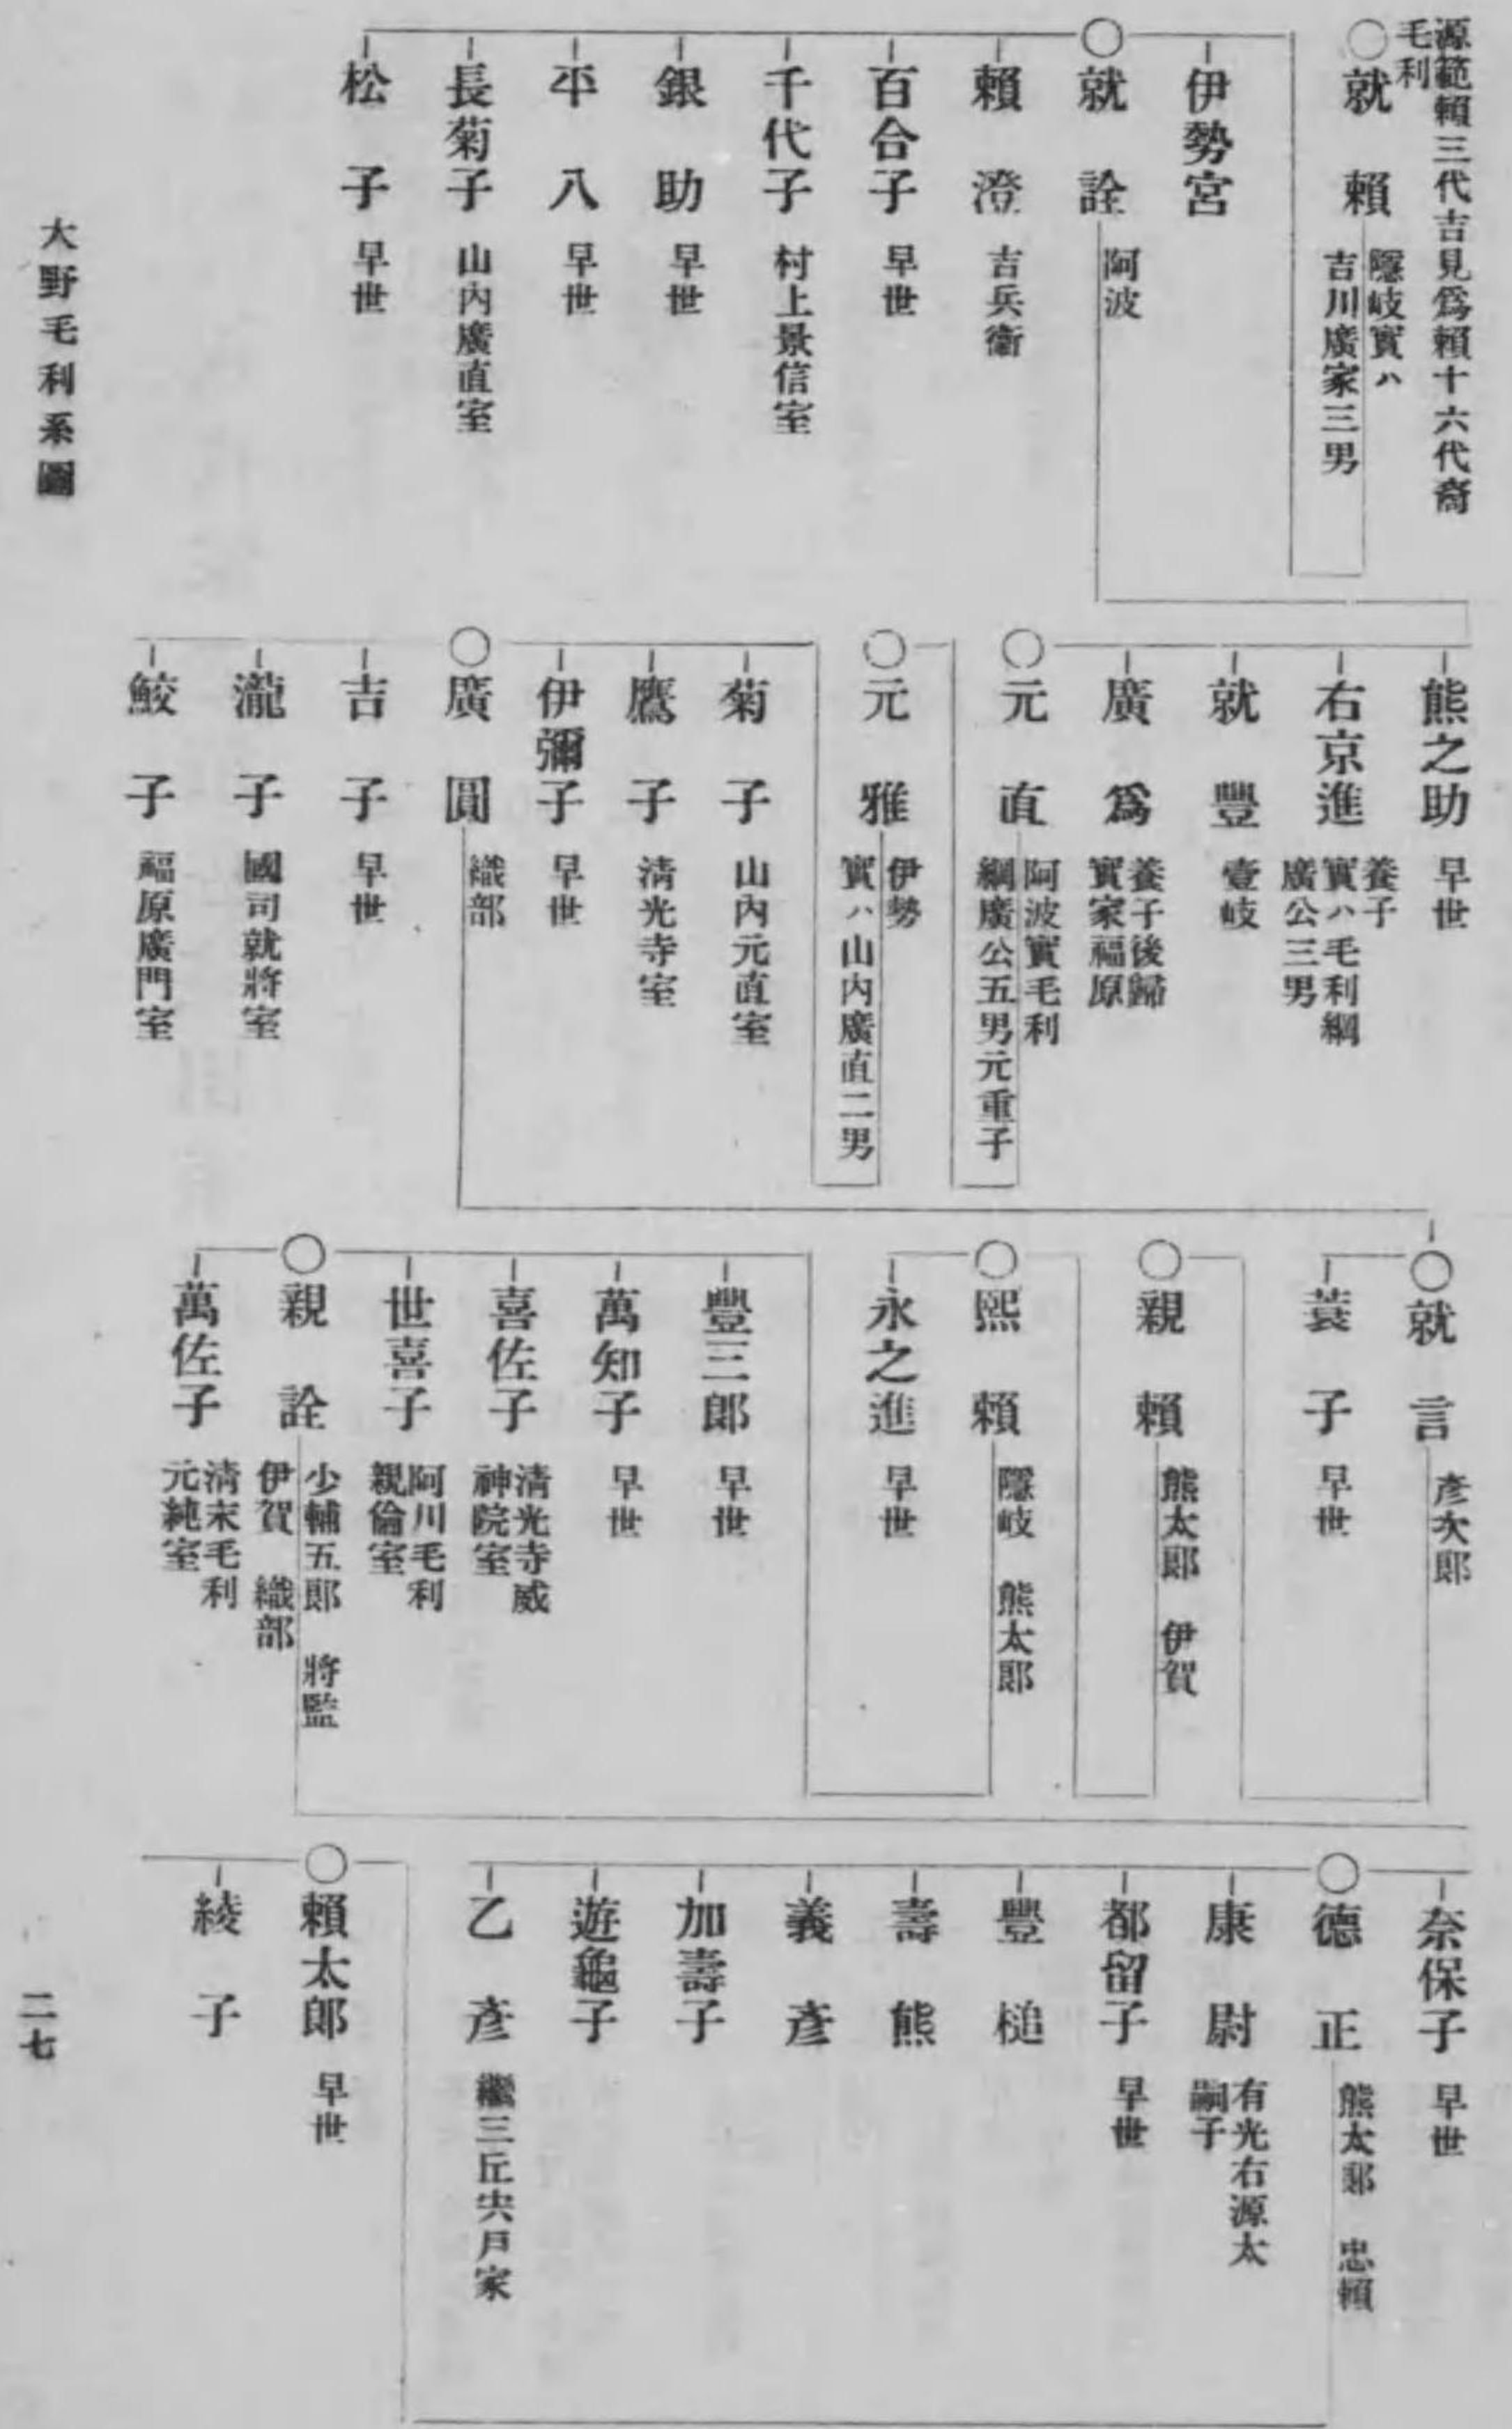 源範賴三代吉見爲賴十六代裔
毛利
就賴
隱岐實ハ
吉川廣家三男
伊勢宮
就詮
阿波
賴澄
吉兵衞
百合子
早世
千代子
村上景信室
銀助
早世
平八
早世
長菊子
山內廣直室
松子
早世
熊之助
早世
右京進
養子
實ハ毛利綱
廣公三男
就豐
壹岐
廣爲
養子後歸
實家福原
元直
阿波實毛利
綱廣公五男元重子
元雅
伊勢
實ハ山內廣直二男
菊子
山內元直室
鷹子
淸光寺室
伊彌子
早世
廣圓
織部
吉子
早世
瀧子
國司就將室
鮫子
福原廣門室
就言
彥次郞
蓑子
早世
親賴
熊太郞 伊賀
熙賴
隱岐 熊太郞
永之進
早世
豐三郞
早世
萬知子
早世
喜佐子
淸光寺威
神院室
世喜子
阿川毛利
親倫室
親詮
少輔五郞 將監
伊賀 織部
萬佐子
淸末毛利
元純室
奈保子
早世
德正
熊太郞 忠賴
康尉
有光右源太
嗣子
都留子
早世
豐槌
壽熊
義彥
加壽子
遊龜子
乙彥
繼三丘宍戶家
賴太郞
早世
綾子
大野毛利系圖
二七